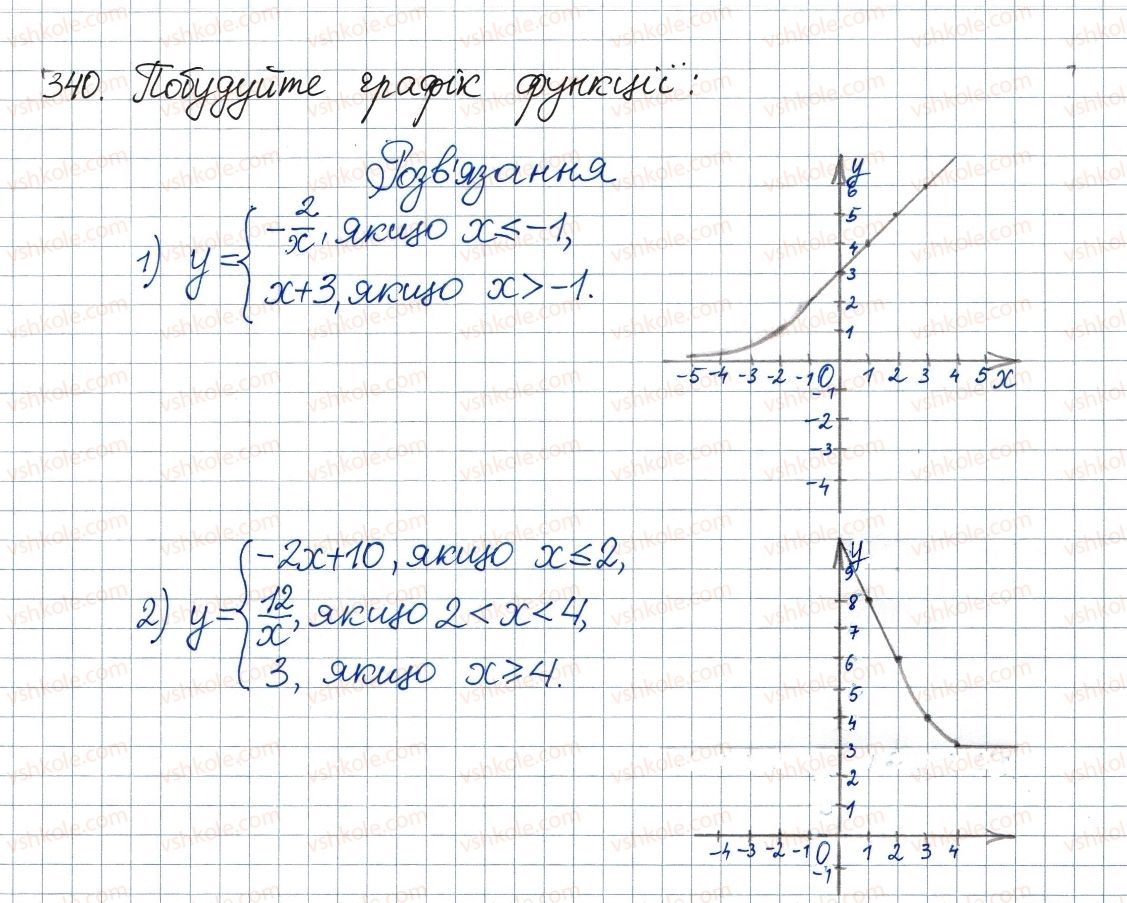 340. Побудуйте графік функції:
Розв'язання
1) y = { -2/x, якщо x ≤ -1,
x+3, якщо x > -1.
y
6
5
4
3
2
1
-5 -4 -3 -2 -1 0 1 2 3 4 5 x
-1
-2
-3
-4
2) y = { -2x+10, якщо x ≤ 2,
12/x, якщо 2 < x < 4,
3, якщо x ≥ 4.
y
9
8
7
6
5
4
3
2
1
-4 -3 -2 -1 0 1 2 3 4
-1
vshkole.com